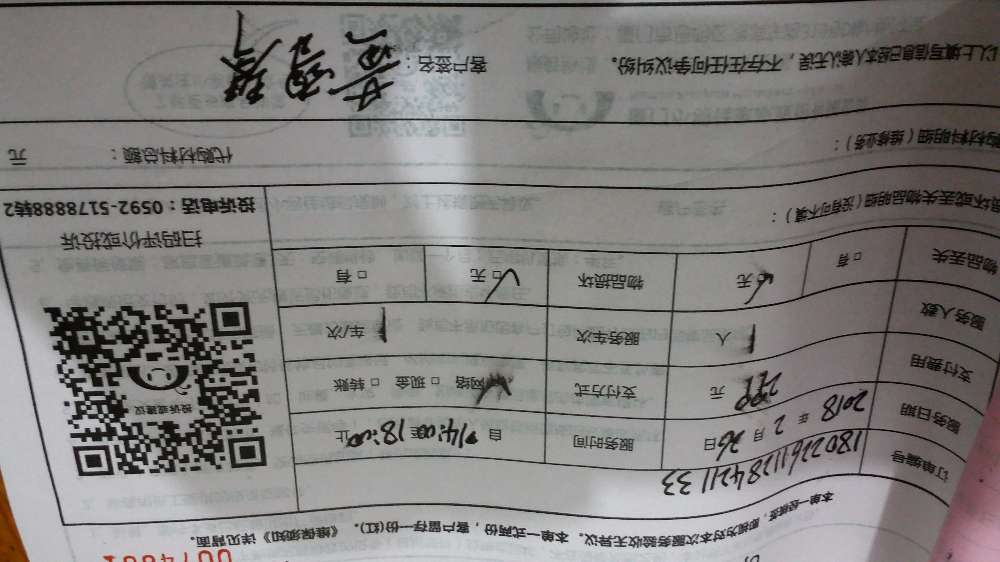 0074881
本单一经税签,即视为对本次服务验收无异议。本单一式两份,客户留存一份(红)。《维保须知》详见背面。
订单编号 18022611284211 33
服务日期 2018 年 2 月 26 日 服务时间 自 14:00 至 18:00 止
支付费用 299 元 支付方式 网络 □ 现金 □ 转账
服务人数 1 人 服务车次 1 车/次
物品丢失 □ 有 无 物品损坏 □ 无 □ 有
损坏或丢失物品明细(没有可不填):
投诉或建议
扫码评价或投诉
投诉电话:0592-5178888转2
购材料明细(维修业务):
代购材料总额: 元
以上填写信息已经本人确认无误,不存在任何争议纠纷。 客户签名: